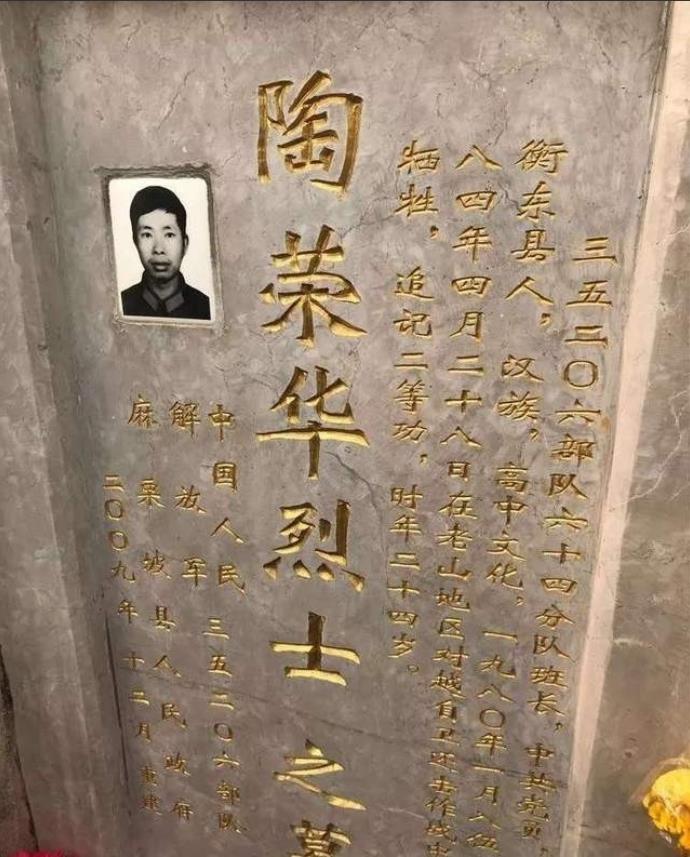 三五二〇六部队六十四分队班长，中共党员，
衡东县人，汉族，高中文化，一九八〇年一月入伍
八四年四月二十八日在老山地区对越自卫还击作战中
牺牲，追记二等功，时年二十四岁。
陶荣华烈士之墓
中国人民
解放军
三五二〇六部队
麻栗坡县人民政府
二〇〇九年十二月重建